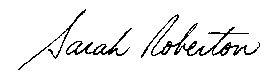 Sarah Roberton